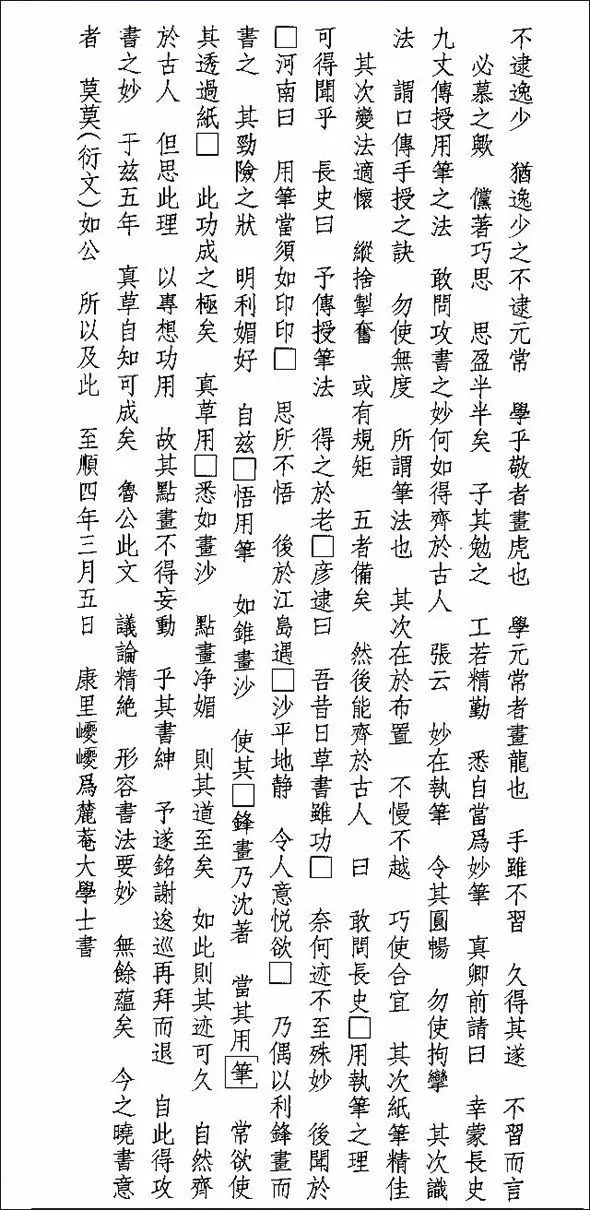 不逮逸少　猶逸少之不逮元常　學乎敬者畫虎也　學元常者畫龍也　手雖不習　久得其遂　不習而言
必慕之歟　儻著巧思　思盈半半矣　子其勉之　工若精勤　悉自當爲妙筆　真卿前請曰　幸蒙長史
九丈傳授用筆之法　敢問攻書之妙何如得齊於古人　張云　妙在執筆　令其圓暢　勿使拘攣　其次識
法　謂口傳手授之訣　勿使無度　所謂筆法也　其次在於布置　不慢不越　巧使合宜　其次紙筆精佳
其次變法適懷　縱捨掣奮　或有規矩　五者備矣　然後能齊於古人　曰　敢問長史□用執筆之理
可得聞乎　長史曰　予傳授筆法　得之於老□彦逮曰　吾昔日草書雖功□　奈何迹不至殊妙　後聞於
□河南曰　用筆當須如印印□　思所不悟　後於江島遇□沙平地静　令人意悦欲□　乃偶以利鋒畫而
書之　其勁險之狀　明利媚好　自兹□悟用筆　如錐畫沙　使其□鋒畫乃沈著　當其用［筆］　常欲使
其透過紙□　此功成之極矣　真草用□悉如畫沙　點畫净媚　則其道至矣　如此則其迹可久　自然齊
於古人　但思此理　以專想功用　故其點畫不得妄動　乎其書紳　予遂銘謝逡巡再拜而退　自此得攻
書之妙　于兹五年　真草自知可成矣　魯公此文　議論精絶　形容書法要妙　無餘蘊矣　今之曉書意
者　莫莫（衍文）如公　所以及此　至順四年三月五日　康里巎巎爲麓菴大學士書